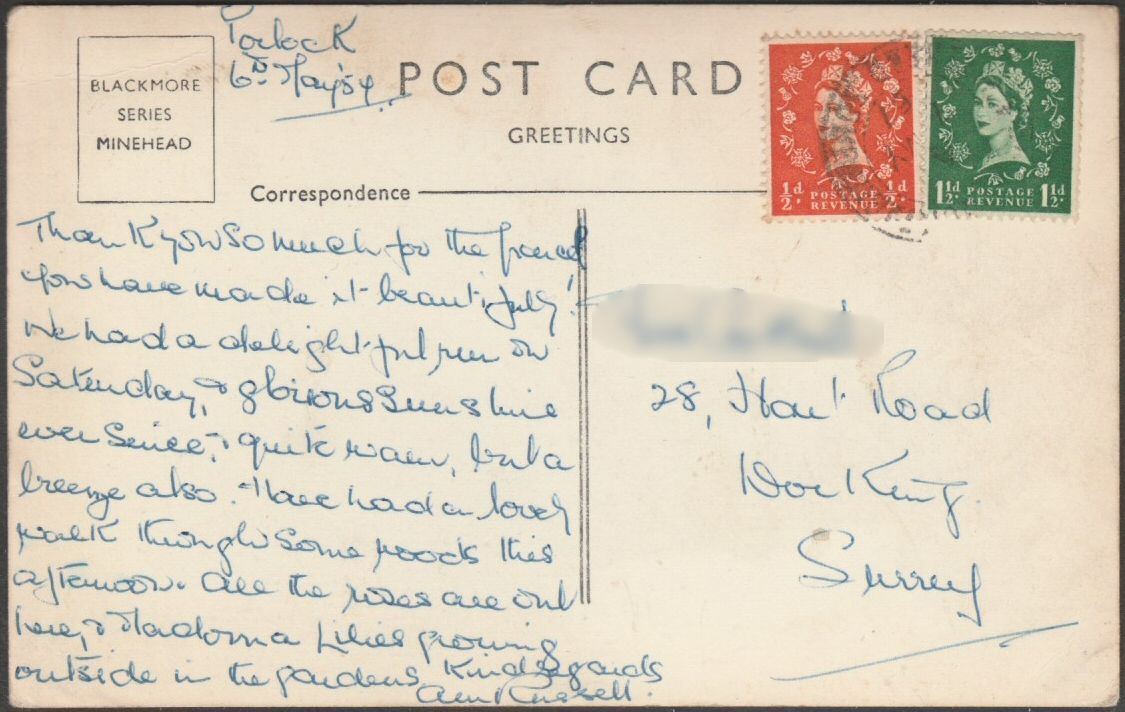 Porlock
6th May '54
BLACKMORE
SERIES
MINEHEAD
POST CARD
GREETINGS
Correspondence
½d POSTAGE REVENUE ½d
1½d POSTAGE REVENUE 1½d
Thank you so much for the parcel
you have made it beautifully!
We had a delightful run on
Saturday, & glorious sunshine
ever since, & quite warm, but a
breeze also. Have had a lovely
walk through some woods this
afternoon. All the roses are out
here, & Madonna Lilies growing
outside in the gardens Kind regards
Ann Russell.
28, Hart Road
Dorking.
Surrey